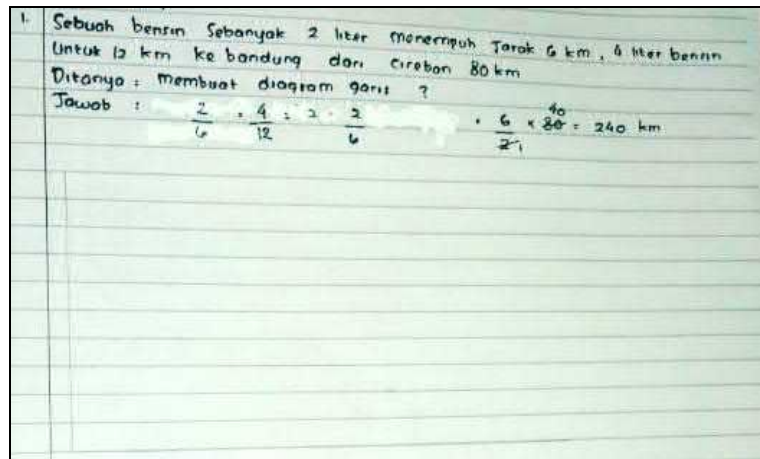 1. Sebuah bensin Sebanyak 2 liter menempuh Jarak 6 km, 4 liter bensin
Untuk 12 km ke bandung dari cirebon 80 km
Ditanya : membuat diagram garis ?
Jawab : 2/6 = 4/12 = 2 . 2/6 . 6/2 1 × 80 40 = 240 km